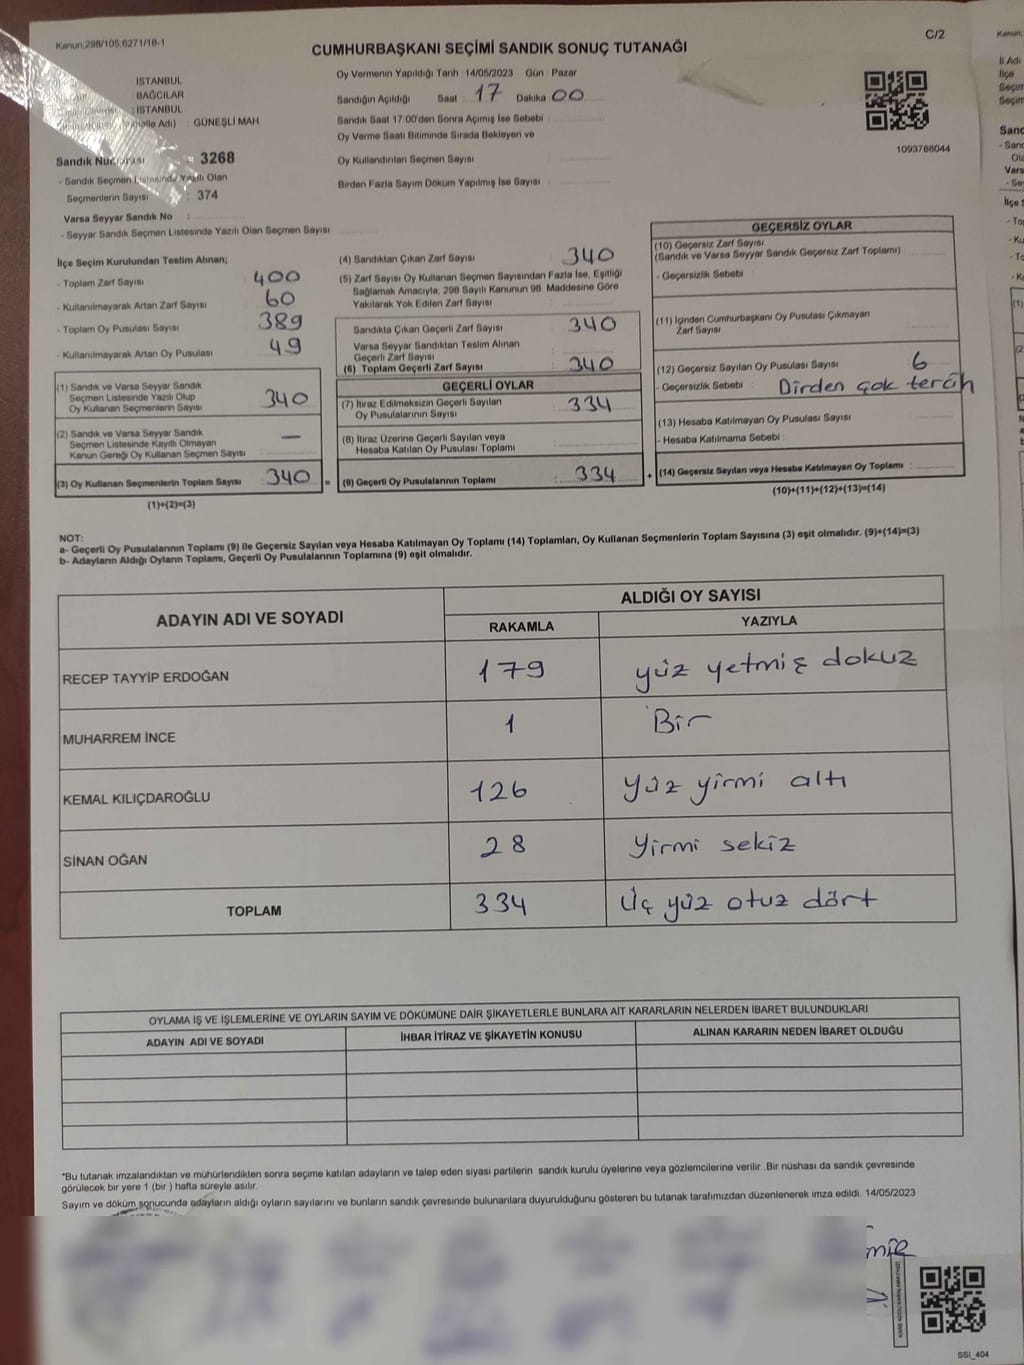 Kanun:298/105;6271/18-1
C/2
CUMHURBAŞKANI SEÇİMİ SANDIK SONUÇ TUTANAĞI
İSTANBUL
BAĞCILAR
: İSTANBUL
Adı) : GÜNEŞLİ MAH.
Sandık : 3268
- Sandık Seçmen Listesinde Yazılı Olan
Seçmenlerin Sayısı : 374
Varsa Seyyar Sandık No :
- Seyyar Sandık Seçmen Listesinde Yazılı Olan Seçmen Sayısı :
Oy Vermenin Yapıldığı Tarih : 14/05/2023 Gün : Pazar
Sandığın Açıldığı Saat : 17 Dakika 00
Sandık Saat 17:00'den Sonra Açımış İse Sebebi :
Oy Verme Saati Bitiminde Sırada Bekleyen ve
Oy Kullandırılan Seçmen Sayısı :
Birden Fazla Sayım Döküm Yapılmış İse Sayısı :
1093788044
İlçe Seçim Kurulundan Teslim Alınan;
- Toplam Zarf Sayısı : 400
- Kullanılmayarak Artan Zarf Sayısı : 60
- Toplam Oy Pusulası Sayısı : 389
- Kullanılmayarak Artan Oy Pusulası : 49
(1) Sandık ve Varsa Seyyar Sandık
Seçmen Listesinde Yazılı Olup
Oy Kullanan Seçmenlerin Sayısı : 340
(2) Sandık ve Varsa Seyyar Sandık
Seçmen Listesinde Kayıtlı Olmayan
Kanun Gereği Oy Kullanan Seçmen Sayısı : —
(3) Oy Kullanan Seçmenlerin Toplam Sayısı : 340 =
(1)+(2)=(3)
(4) Sandıktan Çıkan Zarf Sayısı : 340
(5) Zarf Sayısı Oy Kullanan Seçmen Sayısından Fazla İse, Eşitliği
Sağlamak Amacıyla, 298 Sayılı Kanunun 98. Maddesine Göre
Yakılarak Yok Edilen Zarf Sayısı :
Sandıkta Çıkan Geçerli Zarf Sayısı : 340
Varsa Seyyar Sandıktan Teslim Alınan
Geçerli Zarf Sayısı :
(6) Toplam Geçerli Zarf Sayısı : 340
GEÇERLİ OYLAR
(7) İtiraz Edilmeksizin Geçerli Sayılan
Oy Pusulalarının Sayısı : 334
(8) İtiraz Üzerine Geçerli Sayılan veya
Hesaba Katılan Oy Pusulası Toplamı :
(9) Geçerli Oy Pusulalarının Toplamı : 334 +
GEÇERSİZ OYLAR
(10) Geçersiz Zarf Sayısı
(Sandık ve Varsa Seyyar Sandık Geçersiz Zarf Toplamı) :
- Geçersizlik Sebebi :
(11) İçinden Cumhurbaşkanı Oy Pusulası Çıkmayan
Zarf Sayısı :
(12) Geçersiz Sayılan Oy Pusulası Sayısı : 6
- Geçersizlik Sebebi : Birden çok tercih
(13) Hesaba Katılmayan Oy Pusulası Sayısı :
- Hesaba Katılmama Sebebi :
(14) Geçersiz Sayılan veya Hesaba Katılmayan Oy Toplamı :
(10)+(11)+(12)+(13)=(14)
NOT:
a- Geçerli Oy Pusulalarının Toplamı (9) ile Geçersiz Sayılan veya Hesaba Katılmayan Oy Toplamı (14) Toplamları, Oy Kullanan Seçmenlerin Toplam Sayısına (3) eşit olmalıdır. (9)+(14)=(3)
b- Adayların Aldığı Oyların Toplamı, Geçerli Oy Pusulalarının Toplamına (9) eşit olmalıdır.
ADAYIN ADI VE SOYADI
ALDIĞI OY SAYISI
RAKAMLA YAZIYLA
RECEP TAYYİP ERDOĞAN 179 yüz yetmiş dokuz
MUHARREM İNCE 1 Bir
KEMAL KILIÇDAROĞLU 126 yüz yirmi altı
SİNAN OĞAN 28 yirmi sekiz
TOPLAM 334 üç yüz otuz dört
OYLAMA İŞ VE İŞLEMLERİNE VE OYLARIN SAYIM VE DÖKÜMÜNE DAİR ŞİKAYETLERLE BUNLARA AİT KARARLARIN NELERDEN İBARET BULUNDUKLARI
ADAYIN ADI VE SOYADI İHBAR İTİRAZ VE ŞİKAYETİN KONUSU ALINAN KARARIN NEDEN İBARET OLDUĞU
*Bu tutanak imzalandıktan ve mühürlendikten sonra seçime katılan adayların ve talep eden siyasi partilerin sandık kurulu üyelerine veya gözlemcilerine verilir .Bir nüshası da sandık çevresinde
görülecek bir yere 1 (bir ) hafta süreyle asılır.
Sayım ve döküm sonucunda adayların aldığı oyların sayılarını ve bunların sandık çevresinde bulunanlara duyurulduğunu gösteren bu tutanak tarafımızdan düzenlenerek imza edildi. 14/05/2023
SSI_404